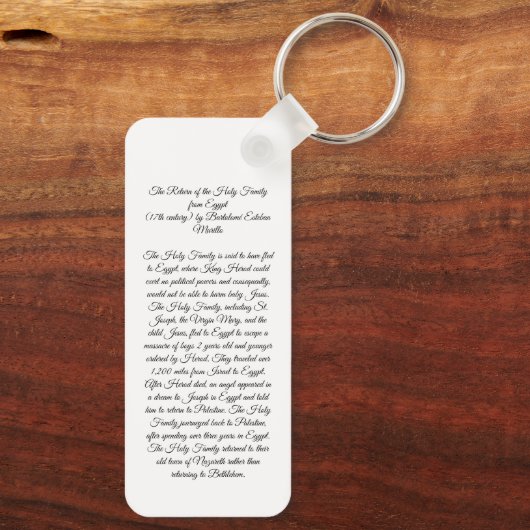 The Return of the Holy Family
from Egypt
(17th century) by Bartalomé Esteban
Murillo
The Holy Family is said to have fled
to Egypt, where King Herod could
exert no political powers and consequently,
would not be able to harm baby Jesus.
The Holy Family, including St.
Joseph, the Virgin Mary, and the
child Jesus, fled to Egypt to escape a
massacre of boys 2 years old and younger
ordered by Herod. They traveled over
1,200 miles from Israel to Egypt.
After Herod died, an angel appeared in
a dream to Joseph in Egypt and told
him to return to Palestine. The Holy
Family journeyed back to Palestine,
after spending over three years in Egypt.
The Holy Family returned to their
old town of Nazareth rather than
returning to Bethlehem.